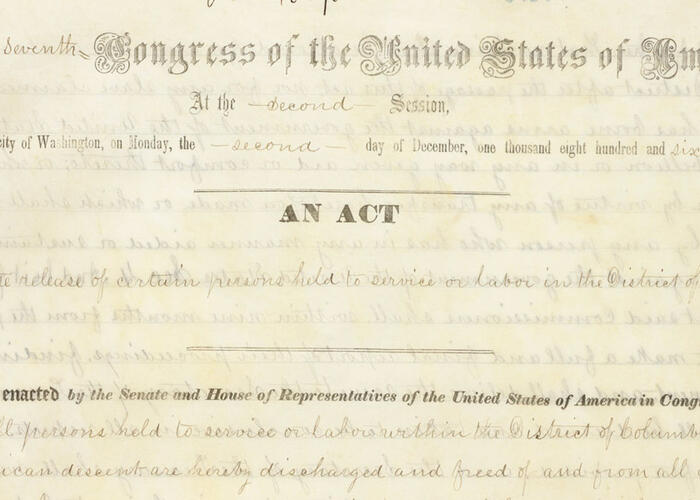 Seventh Congress of the United States of Am
At the second Session,
city of Washington, on Monday, the second day of December, one thousand eight hundred and six
AN ACT
release of certain persons held to service or labor in the District of
enacted by the Senate and House of Representatives of the United States of America in Cong
persons held to service or labor within the District of Columb
ican descent are hereby discharged and freed of and from all